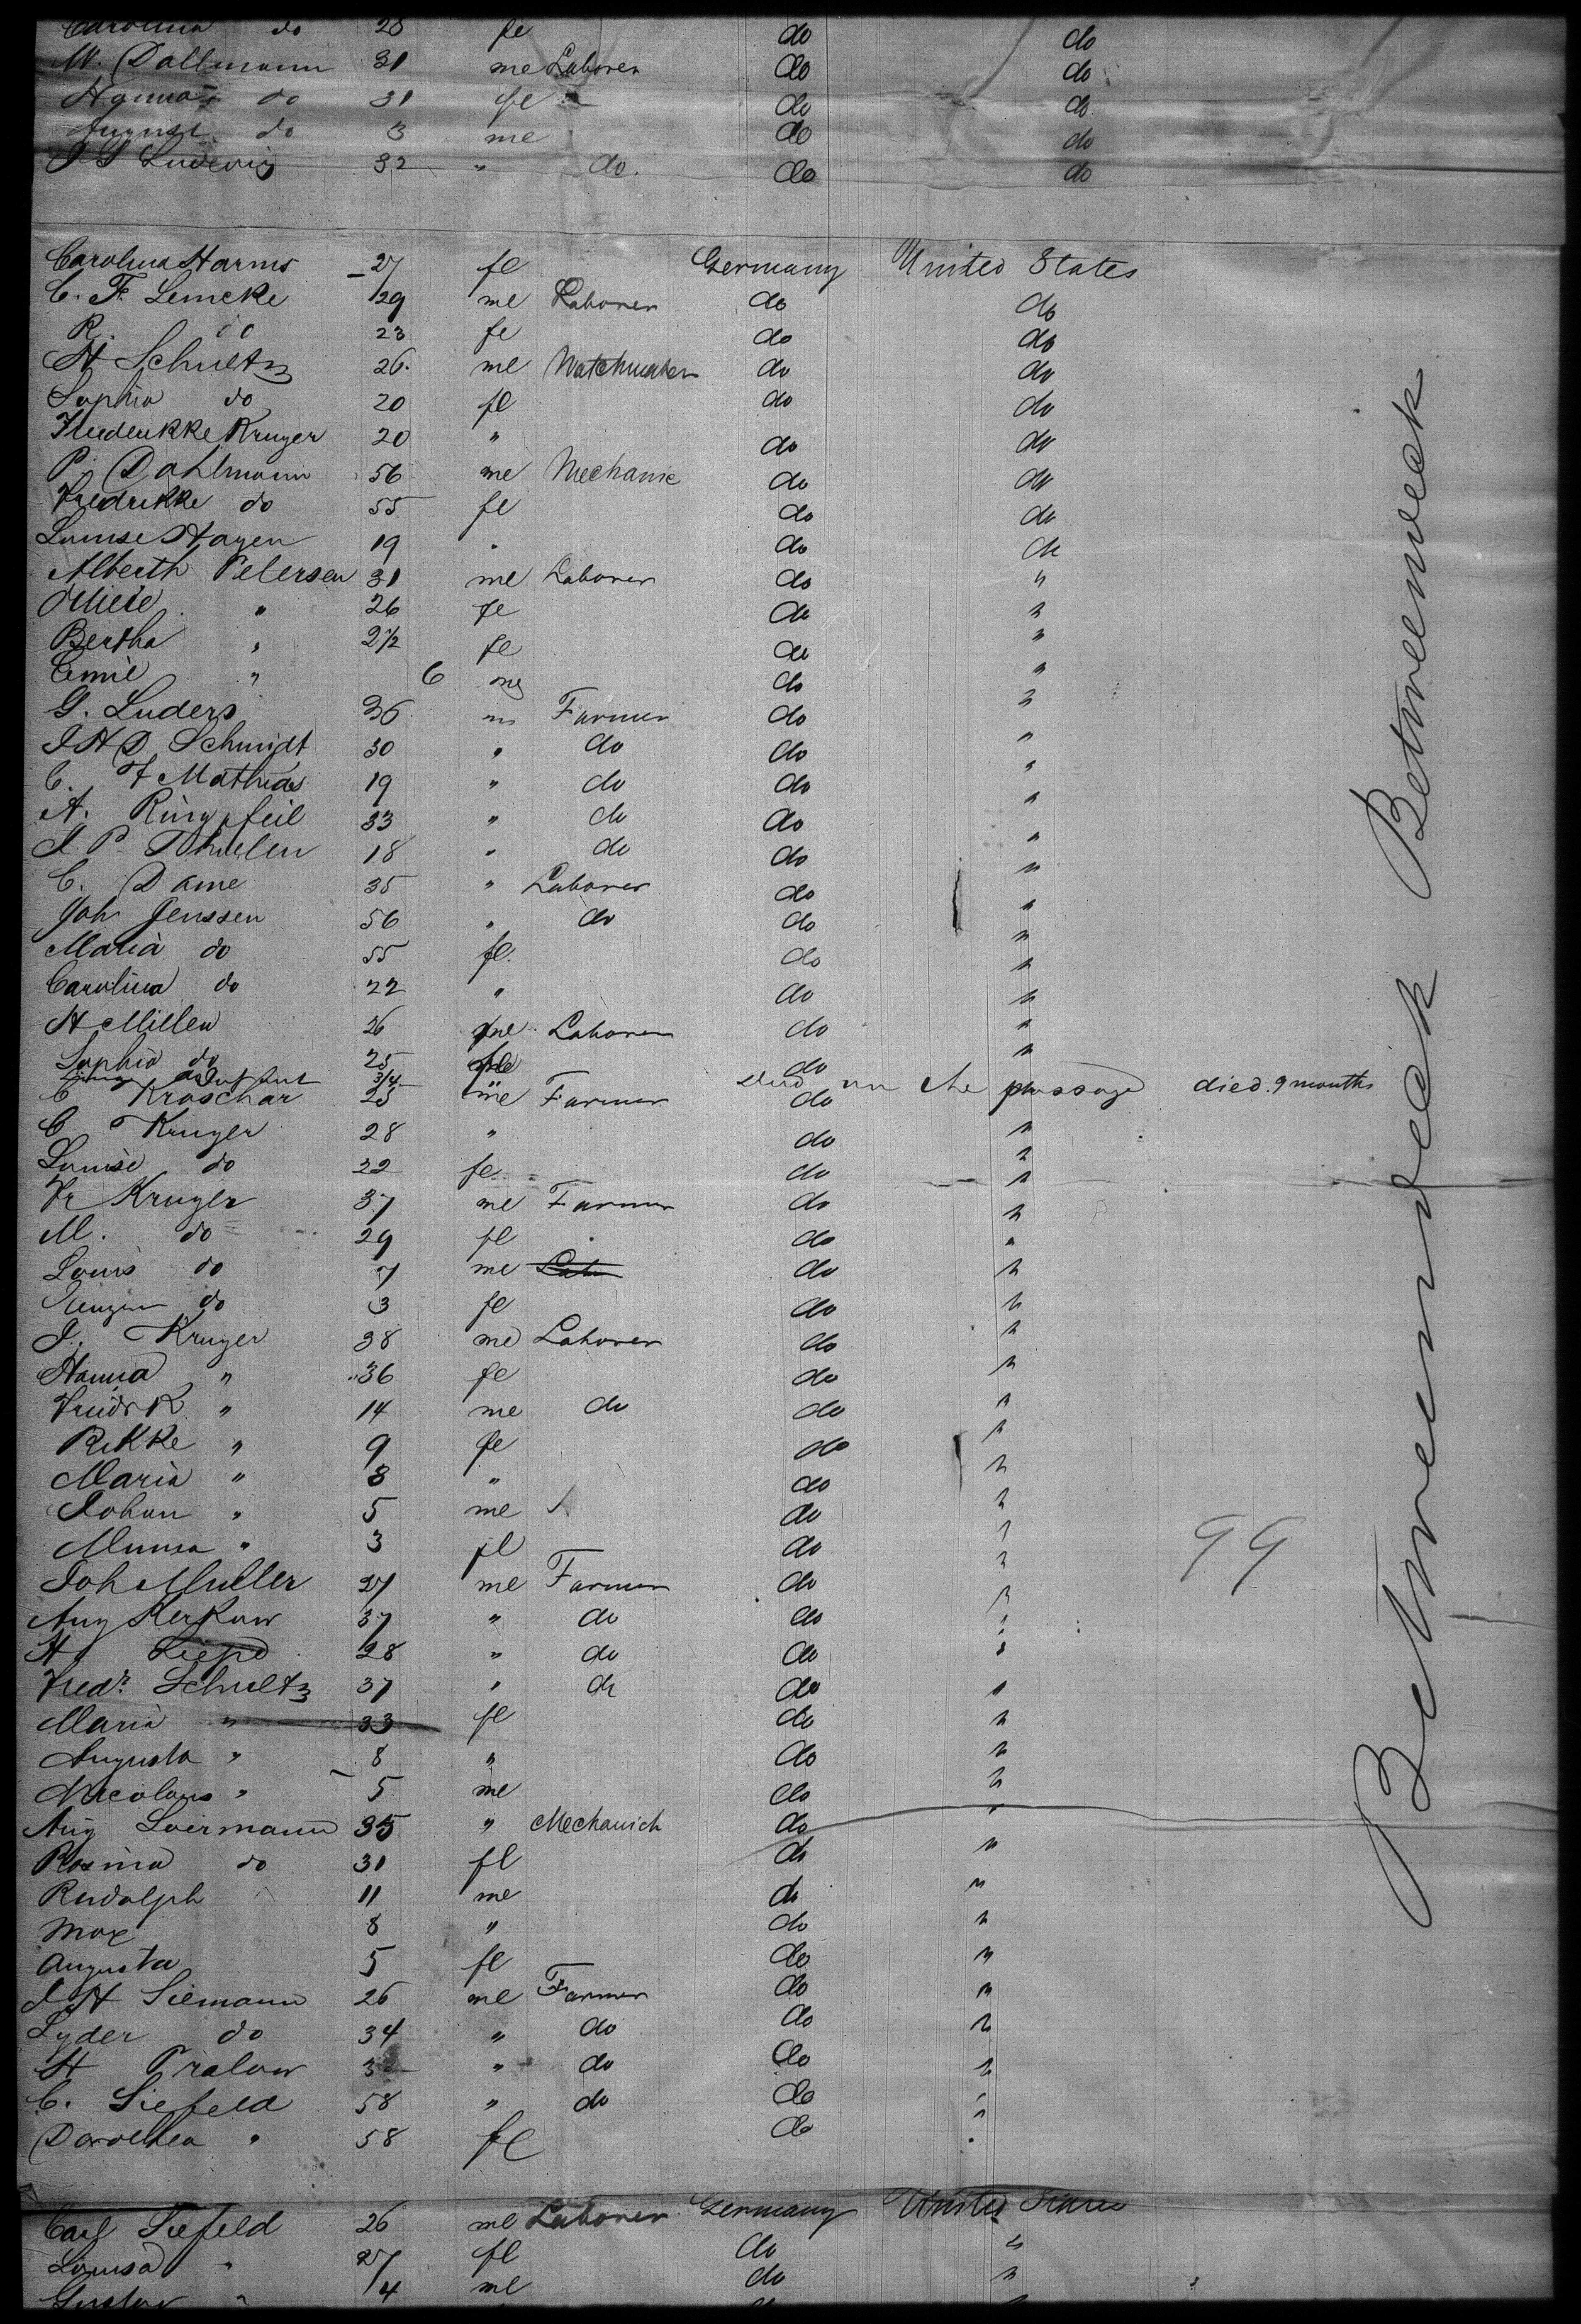 Carolina do 28 fe do do
W. Dallmann 31 me Laborer do do
do 31 fe do do
August do 3 me do do
Ludwig 32 " do. do do
Carolina Harms 27 fe Germany United States
C. F. Lemcke 29 me Laborer do do
R. do 23 fe do do
H Schultz 26. me Watchmaker do do
Sophia do 20 fe do do
Fredrikke Kruger 20 " do do
P. Dahlmann 56 me Mechanic do do
Fredrikke do 55 fe do do
Louise Hagen 19 " do do
Alberth Petersen 31 me Laborer do "
" 26 fe do "
Bertha " 2½ fe do "
Emil " 6 me do "
G. Luders 36 m Farmer do "
J H D Schmidt 30 " do do "
C. F Mathias 19 " do do "
A. Ringpfeil 33 " do do "
J. P Thielen 18 " do do "
C. Dame 35 " Laborer do "
Joh Jenssen 56 " do do "
Maria do 55 fe. do "
Carolina do 22 " do "
H Miller 26 me Laborer do "
Sophia do 25 fe do "
3/4 died on the passage died. 9 months
C Kraschar 25 me Farmer do
C Kruger 28 " do "
Louise do 22 fe do "
Fr Kruger 37 me Farmer do "
M. do 29 fe do "
Louis do 7 me Lab do "
do 3 fe do "
J. Kruger 38 me Laborer do "
Hanna " 36 fe do "
Friedr K " 14 me do do "
Rikke " 9 fe do "
Maria " 8 " do "
Johan " 5 me do "
Minna " 3 fe do "
Joh Muller 27 me Farmer do "
Aug Kerkow 37 " do do "
H Liepe 28 " do do "
Fredr. Schultz 37 " do do "
Maria " 33 fe do "
Augusta " 8 " do "
Nicolaus " 5 me do "
Aug Loermann 35 " Mechanich do "
Rosina do 31 fe do "
Rudolph 11 me do "
Max 8 " do "
Augusta 5 fe do "
J H Siemann 26 me Farmer do "
Lyder do 34 " do do "
H Pralow 3 " do do "
C. Siefeld 58 " do do "
Dorothea " 58 fe do "
Carl Siefeld 26 me Laborer Germany United States
Louisa " 27 fe do "
Gustav " 4 me do "
99
Betweendeck Betweendeck